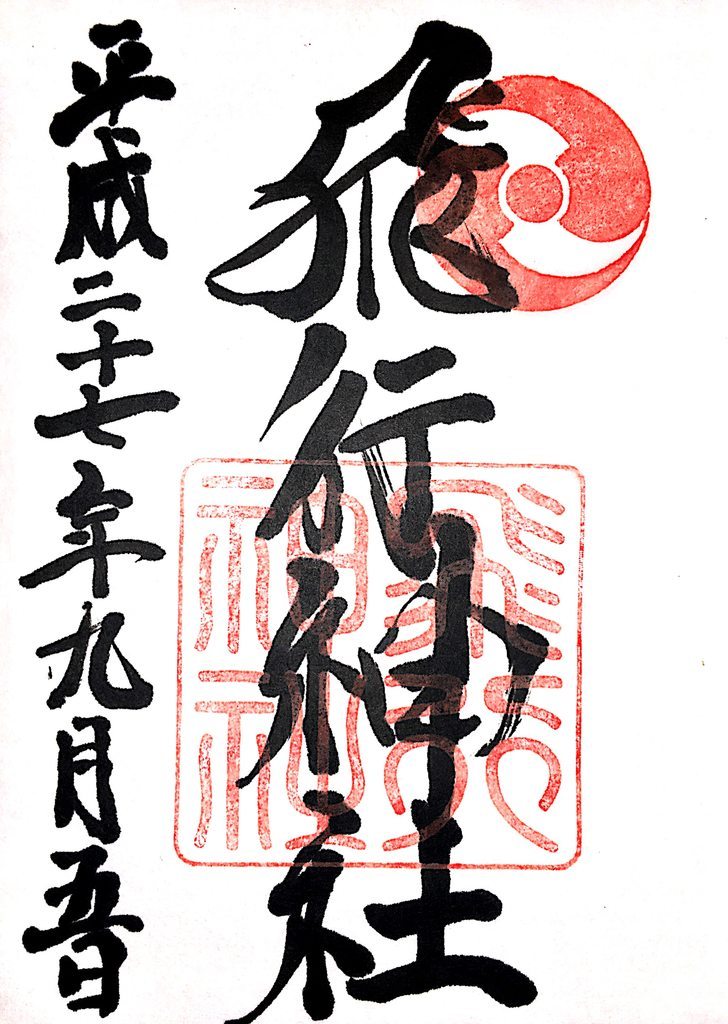 飛行神社
飛行
神社
平成二十七年九月五日